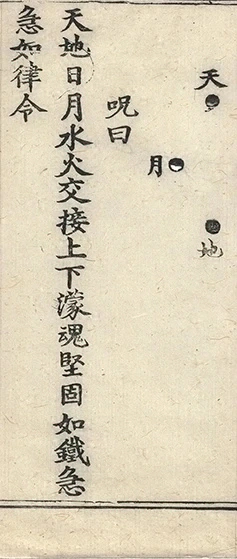 天
月
地
呪曰
天地日月水火交接上下濛魂堅固如鐵急
急如律令